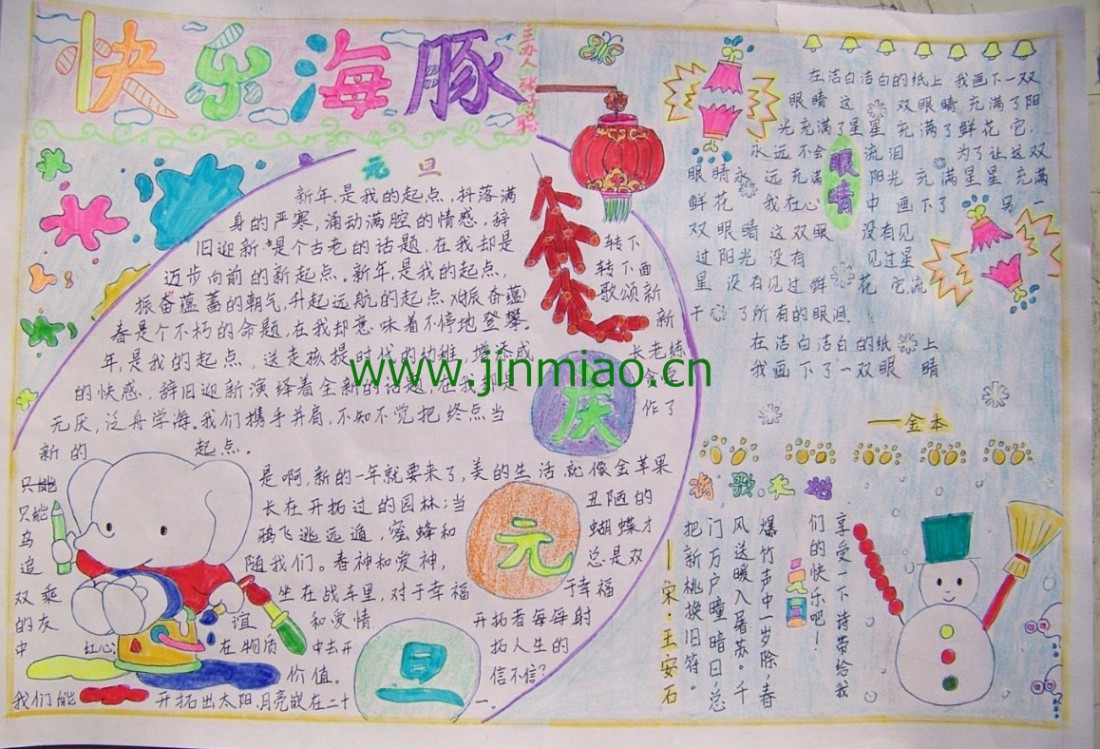 快乐海豚
元旦
新年,是我的起点,抖落满
身的严寒,涌动满腔的情感,辞
旧迎新,是个古老的话题,在我却是
迈步向前的新起点。新年,是我的起点,
振奋蕴蓄的朝气,升起远航的起点
春是个不朽的命题,在我却意味着不停地登攀。
年,是我的起点,送走孩提时代的幼稚,增添成
的快感,辞旧迎新演绎着全新的话题,在我却是
无厌,泛舟学海,我们携手并肩,不知不觉把终点当
新的 起点。
转下
转下面
歌颂新
新
长老练
作了
庆
元
旦
是啊,新的一年就要来了,美的生活就像金苹果
长在开拓过的园林;当 丑陋的
鸦飞逃远遁,蜜蜂和 蝴蝶才
随我们。春神和爱神, 总是双
坐在战车里,对于幸福 于幸福
谊 和爱情 开拓者每每射
红心 在物质 中去开 拓人生的
价值。 信不信?
我们能 开拓出太阳、月亮嵌在二十 一。
只能
只能
乌
追
双乘
的友
中
www.jinmiao.cn
眼睛
在洁白洁白的纸上 我画下一双
眼睛 这 双眼睛 充满了阳
光充满了星星 充满了鲜花 它
永远不会 流泪 为了让这双
眼睛永 远充满 阳光 充满星星 充满
鲜花 我在心 中画下了 另一
双眼睛 这双眼 没有见
过阳光 没有 见过星
星 没有见过鲜 花 它流
干 了所有的眼泪
在洁白洁白的纸 上
我画下了一双眼 睛
——金本
诗歌大地
享受一下诗带给我
们的快乐吧!
元日
爆竹声中一岁除,春
风送暖入屠苏。千
门万户瞳暗日,总
把新桃换旧符。
——宋·王安石